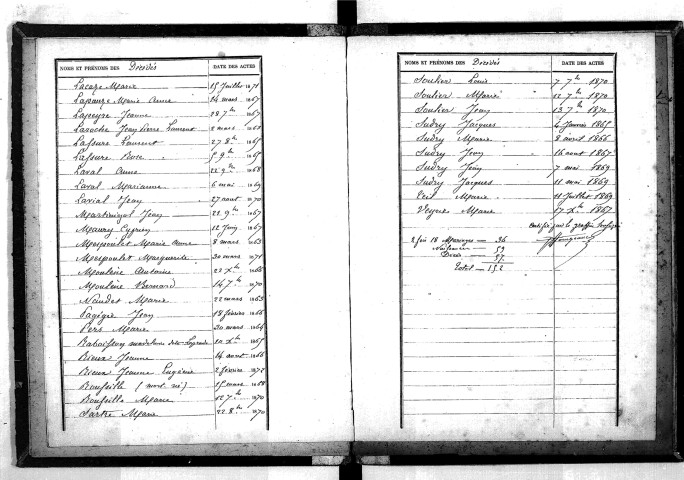 NOMS ET PRÉNOMS DES Décédés DATE DES ACTES
Lacaze Marie 15 Juillet 1871
Lapauze Marie Anne 14 mars 1867
Lapeyre Jeanne 28 7bre 1867
Laroche Jean Pierre Laurent 2 mars 1868
Lassure Laurent 27 8bre 1867
Lassure Rose 5 9bre 1867
Laval Anne 22 9bre 1868
Laval Marianne 6 mai 1869
Lavial Jean 27 aout 1870
Martiniquel Jean 21 9bre 1867
Maury Cyprien 12 Juin 1867
Marie Anne 8 mars 1863
Marguerite 30 mars 1871
Antoine 22 Xbre 1866
Bernard 14 7bre 1870
Naudet Marie 22 mars 1863
Pagigie Jean 18 février 1866
Pers Marie 30 mars 1864
20 Xbre 1865
Rieux Jeanne 14 aout 1866
Rieux Jeanne Eugénie 2 février 1871
(mort né) 15 mars 1868
Marie 12 7bre 1870
Sartre Marie 22 8bre 1870
NOMS ET PRÉNOMS DES Décédés DATE DES ACTES
Soulier Louis 7 7bre 1870
Soulier Marie 12 7bre 1870
Soulier Jean 13 7bre 1870
Sudry Jacques 4 Janvier 1865
Sudry Marie 8 avril 1866
Sudry Jean 16 aout 1867
Sudry Jean 7 mai 1869
Sudry Jacques 11 mai 1869
Teil Marie 11 Juillet 1869
Veyne Marie 17 Xbre 1867
Certifié par le greffier soussigné
Mariages — 36
Naissances — 59
Décès — 57
Total — 152